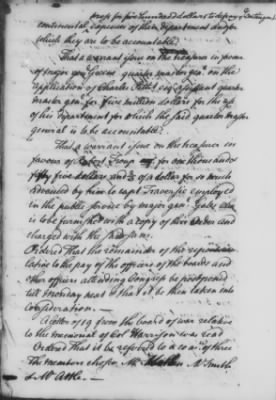 for five hundred dollars to defray contingent
continental expences of their department and for
which they are to be accountable
That a warrant issue on the treasurer in favour
of major gen Greene quarter master gen. on the
application of Charles Pettit esq assistant quarter
master gen. for five million dollars for the use
of his department for which the said quarter master
general is to be accountable:
That a warrant issue on the treasurer in
favour of Robert Troup for one thousand
fifty five dollars and of a dollar for so much
advanced by him to capt employed
in the public service by major gen Gates
is to be furnished with a copy of this order and
charged with the said sum.
Ordered That the remainder of the report
lative to the pay of the officers of the boards and
other officers attending Congress be postponed
till monday next & that it be then taken into
consideration. —
A letter of 19 from the board of war relative
to the memorial of Col Harrison was read
Ordered That it be referred to a comee of three
The members chosen Mr Mr Smith
& Mr Atlee. —